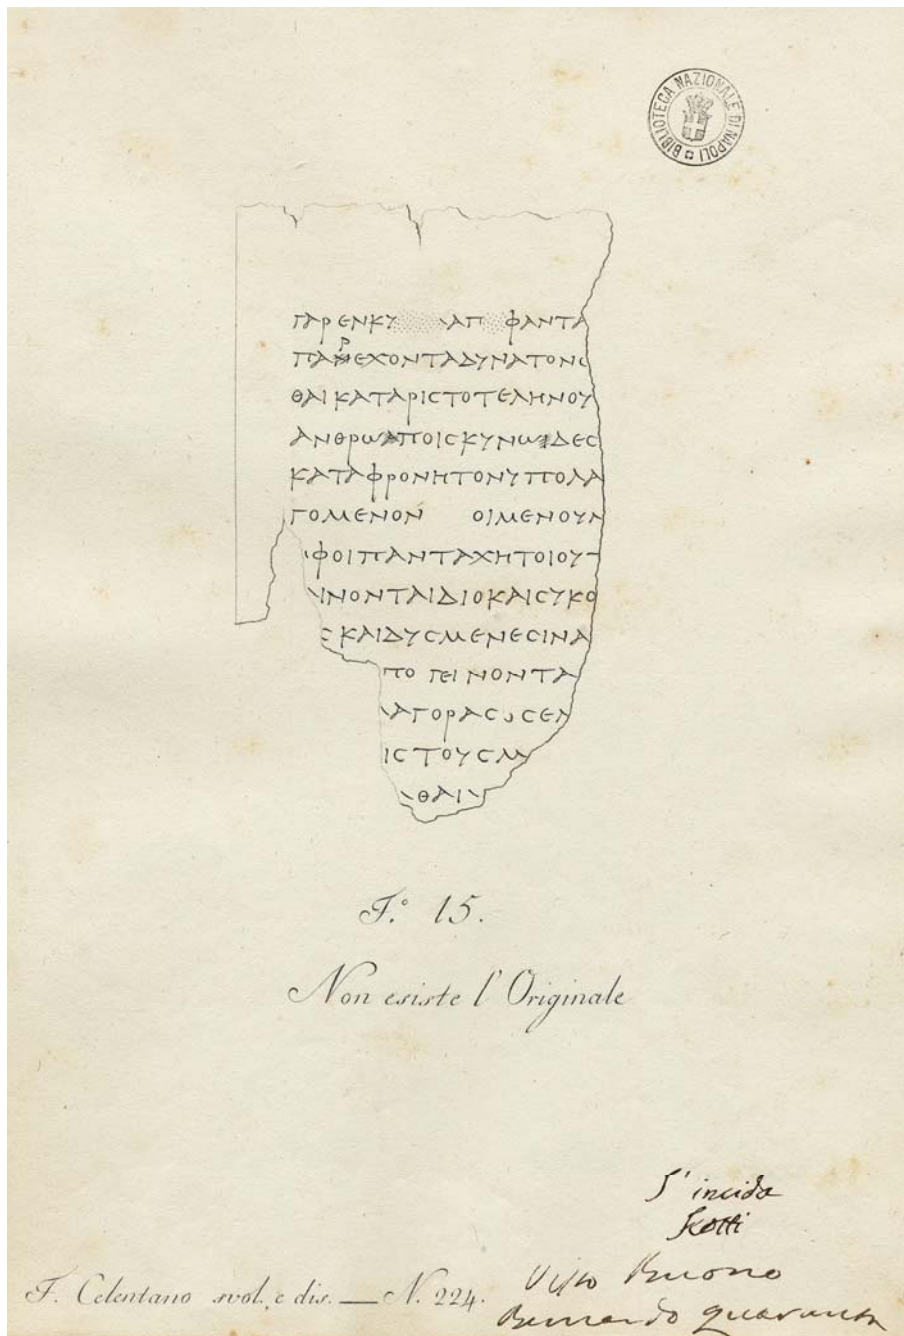 BIBLIOTECA NAZIONALE DI NAPOLI
ΓΑΡΕΝΚΥ ΑΠ ΦΑΝΤΑ
ΠΑΡΕΧΟΝΤΑΔΥΝΑΤΟΝϹ
ΘΑΙΚΑΤΑΡΙϹΤΟΤΕΛΗΝΟΥ
ΑΝΘΡΩΠΟΙϹΚΥΝΩΔΕϹ
ΚΑΤΑΦΡΟΝΗΤΟΝΥΠΟΛΑ
ΓΟΜΕΝΟΝ ΟΙΜΕΝΟΥΝ
ΦΟΙΠΑΝΤΑΧΗΤΟΙΟΥΤ
ΙΝΟΝΤΑΙΔΙΟΚΑΙϹΥΚΟ
Ϲ ΚΑΙΔΥϹΜΕΝΕϹΙΝΑ
ΠΟ ΓΕΙΝΟΝΤΑ
ΑΓΟΡΑϹ ϹΕΛ
ΙϹΤΟΥϹΜ
ΘΑΙ
F.° 15.
Non esiste l' Originale
S' incida
Scotti
F. Celentano svol. e dis. — N. 224.
Visto Buono
Bernardo Quaranta